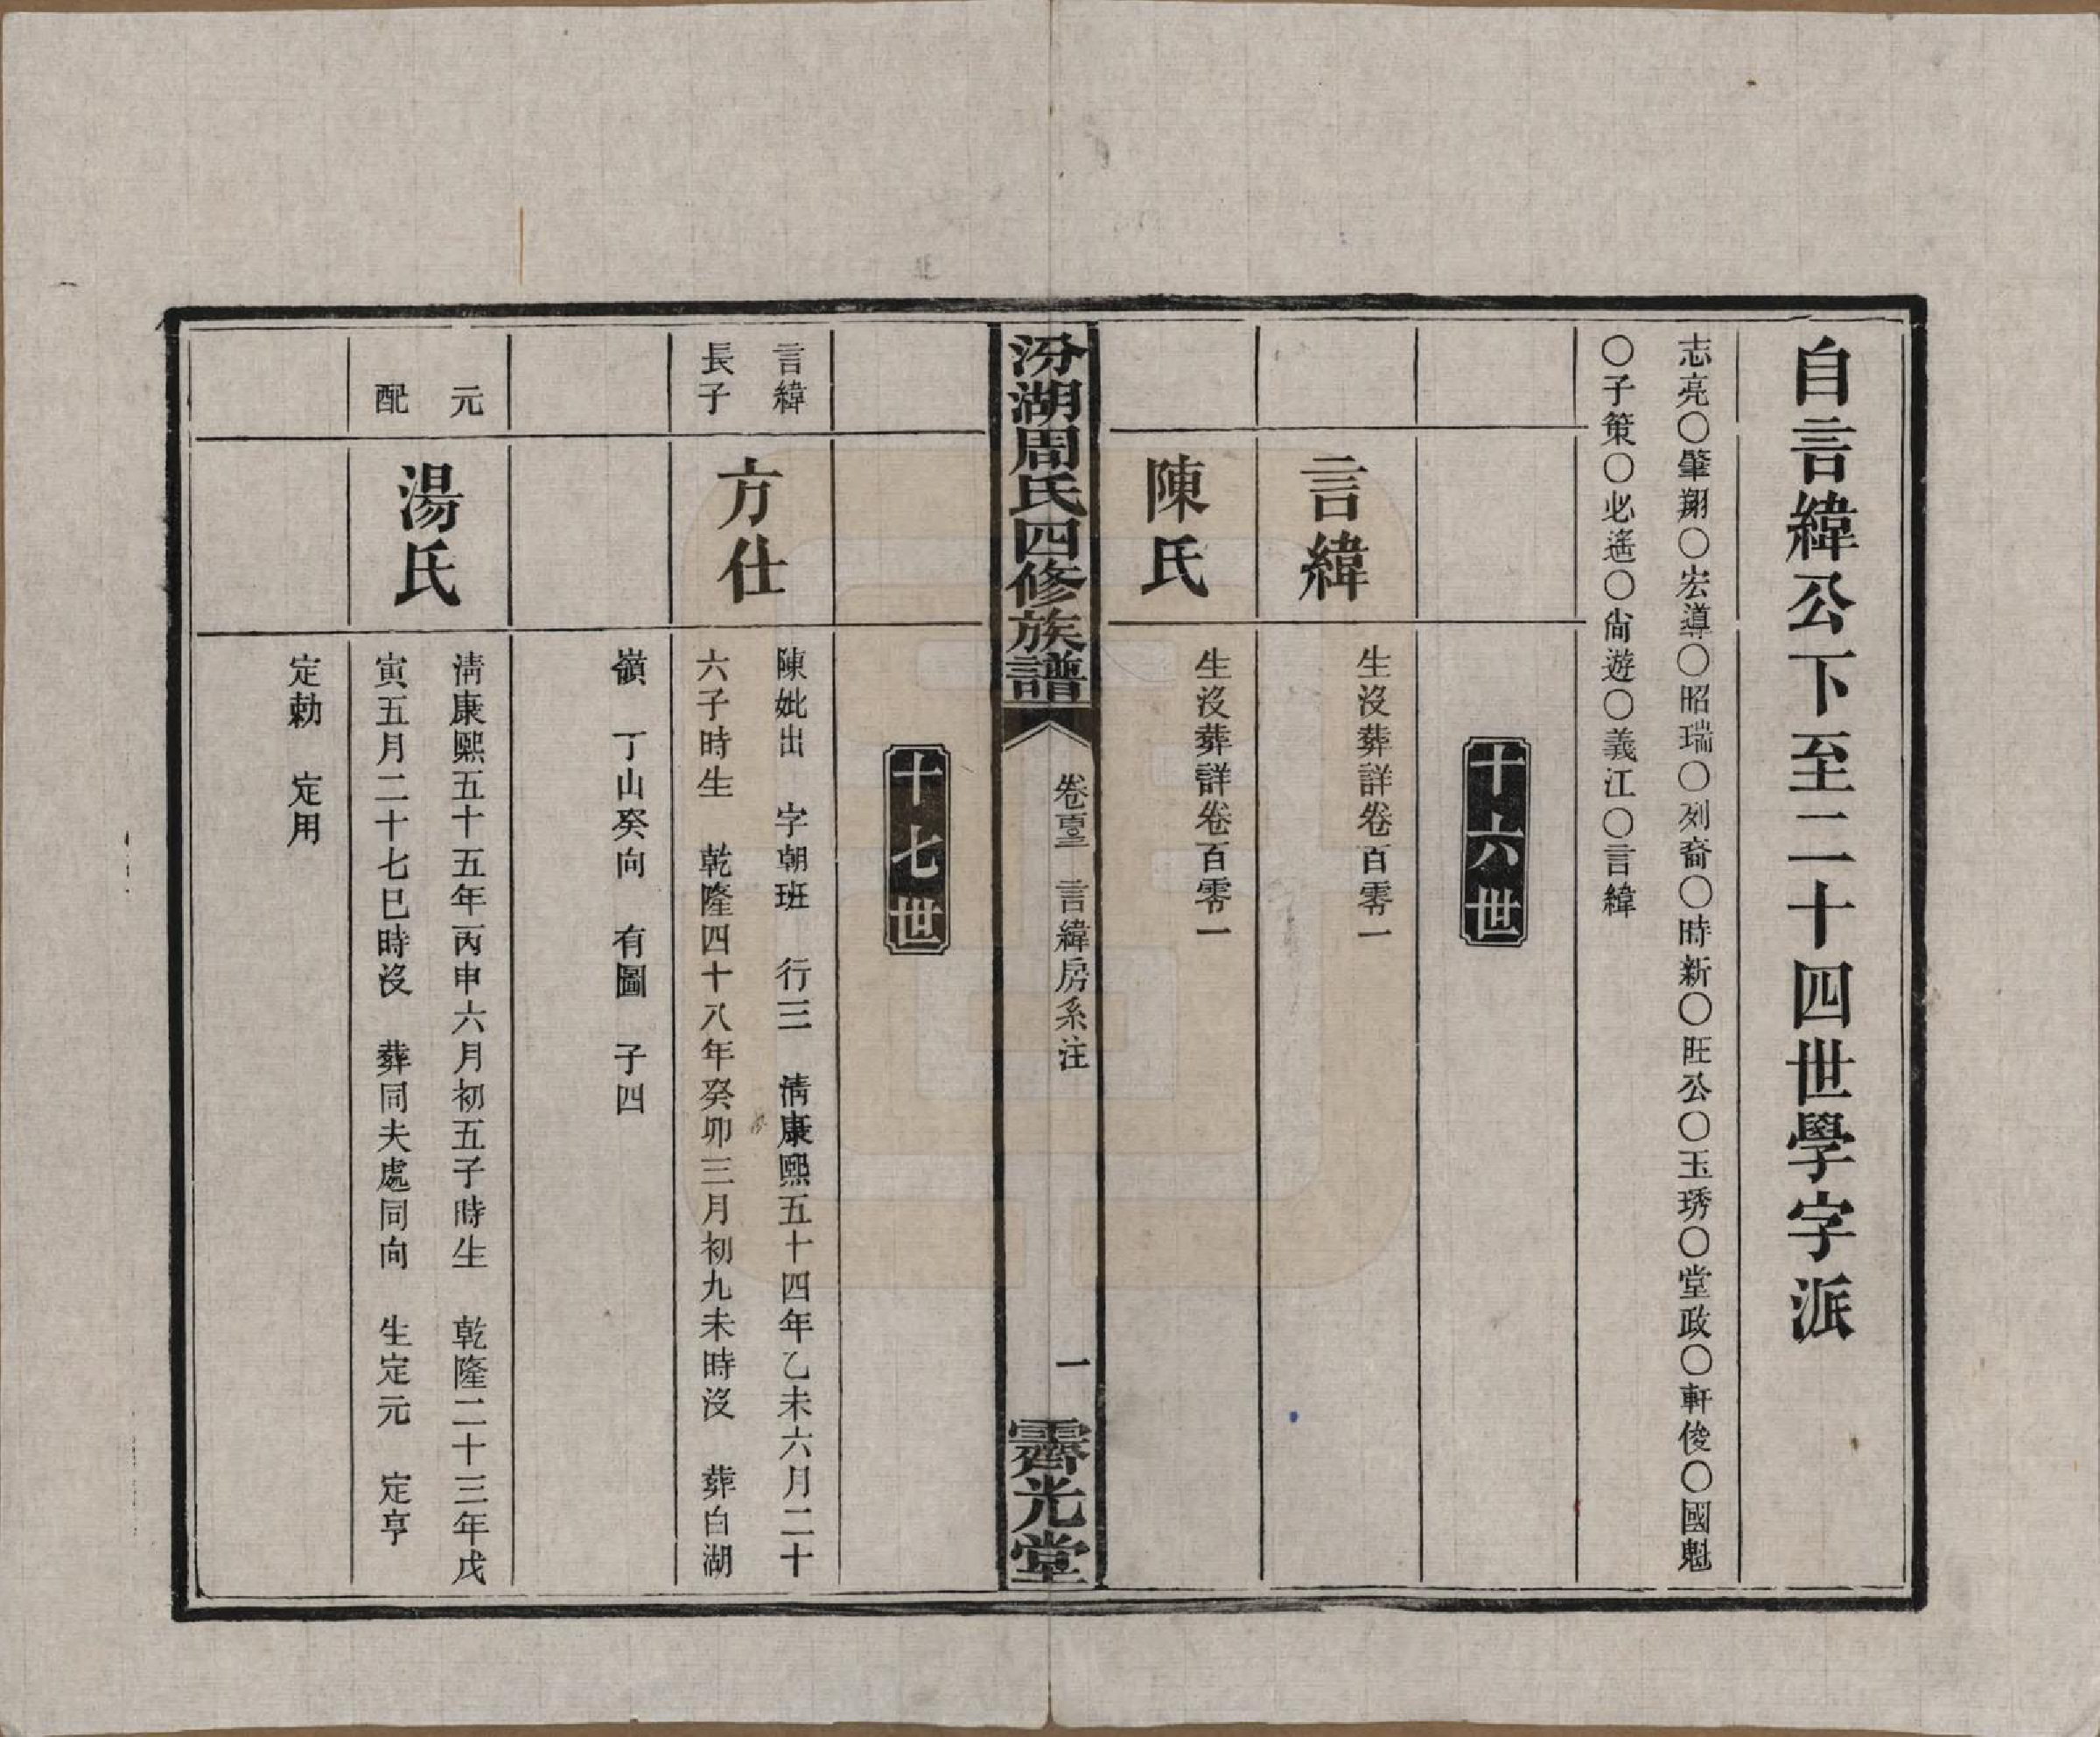 自言緯公下至二十四世學字派
志亮〇肇翔〇宏導〇昭瑞〇列裔〇時新〇旺公〇玉琇〇堂政〇軒俊〇國魁
〇子策〇必遙〇尙遊〇義江〇言緯
十六世
言緯
生沒葬詳卷百零一
陳氏
生沒葬詳卷百零一
汾湖周氏四修族譜
卷百三 言緯房系注
一
霽光堂
十七世
言緯
長子
方仕
陳妣出 字朝班 行三 清康熙五十四年乙未六月二十
六子時生 乾隆四十八年癸卯三月初九未時沒 葬白湖
嶺 丁山癸向 有圖 子四
元
配
湯氏
清康熙五十五年丙申六月初五子時生 乾隆二十三年戊
寅五月二十七巳時沒 葬同夫處同向 生定元 定亨
定勅 定用